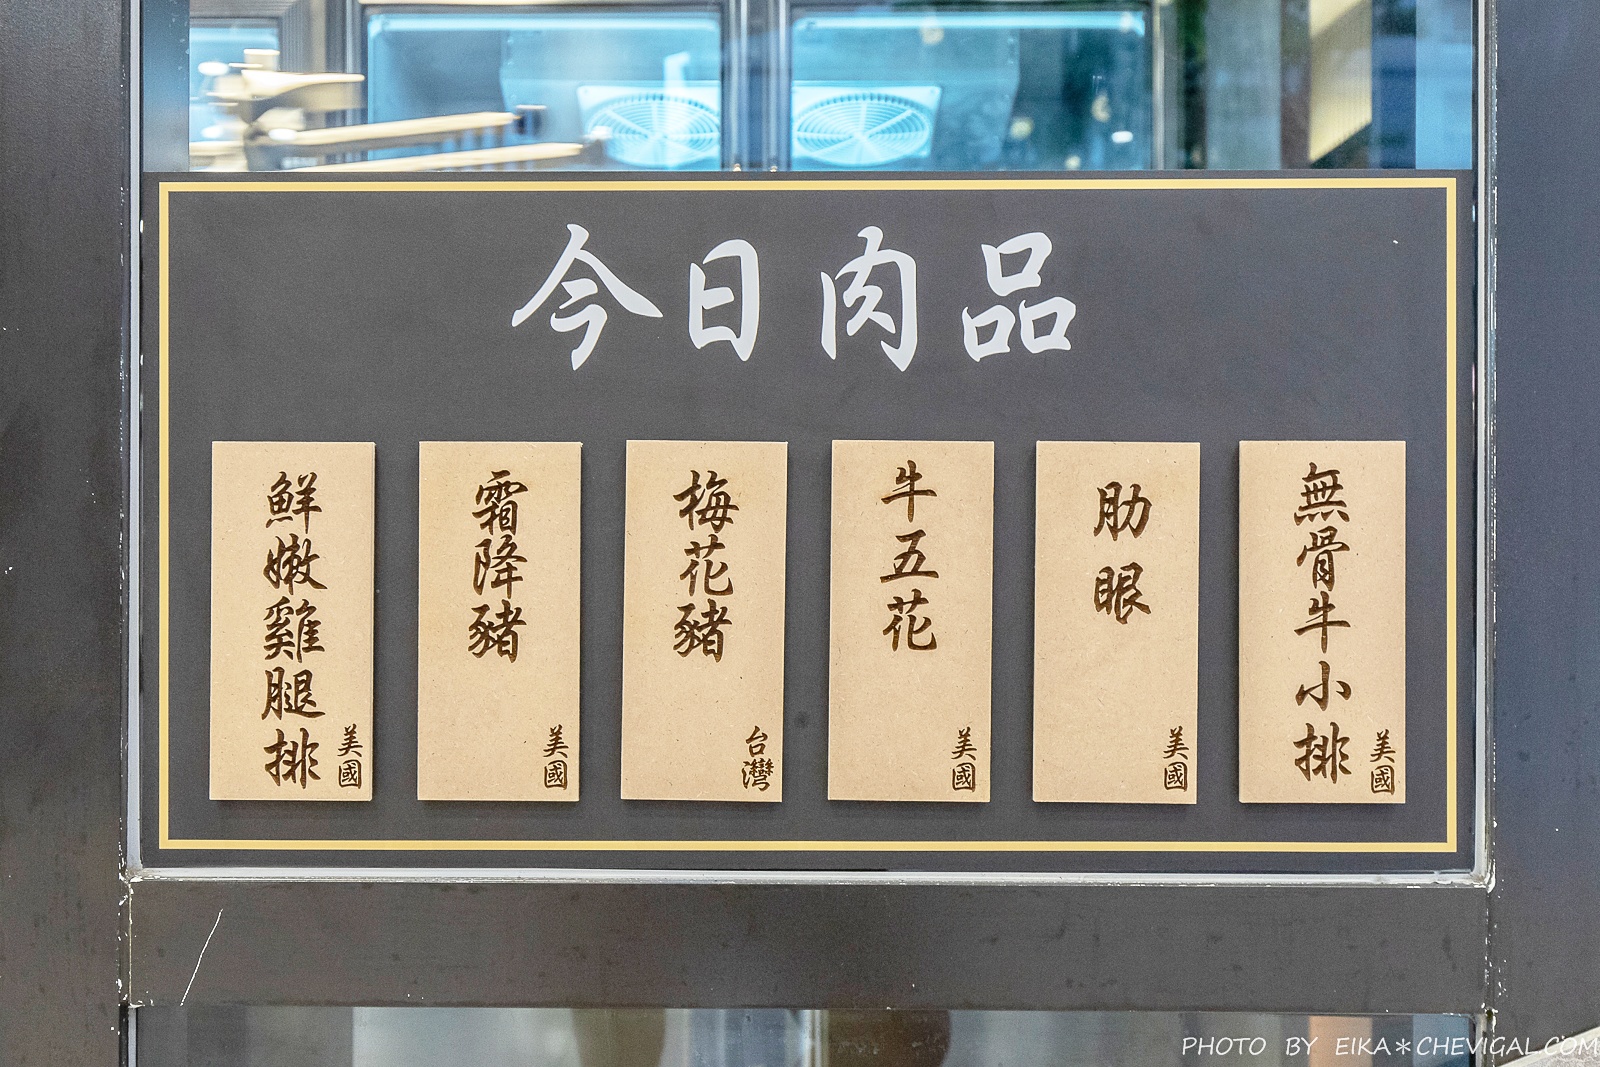 今日肉品
無骨牛小排
美國
肋眼
美國
牛五花
美國
梅花豬
台灣
霜降豬
美國
鮮嫩雞腿排
美國
PHOTO BY EIKA＊CHEVIGAL.COM